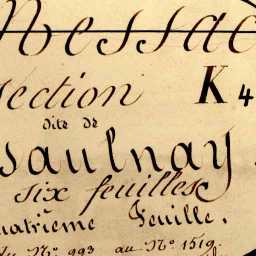 Messac
Section K 4
dite de
saulnay.
six feuilles
quatrième Feuille.
du Nº 993 au Nº 1519.